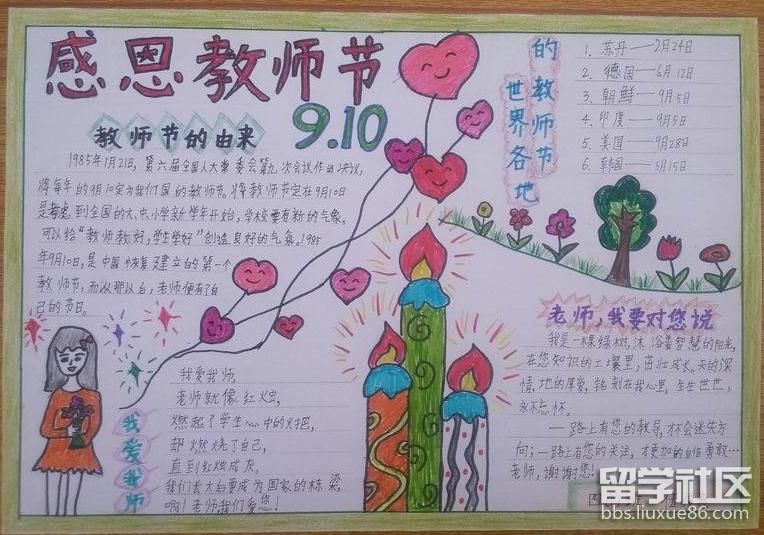 感恩教师节
9.10
教师节的由来
1985年1月21日,第六届全国人大常委会第九次会议作出决议,
将每年的9月10定为我们国的教师节。将教师节定在9月10日
是考虑到全国的大、中、小学新学年开始,学校要有新的气象。
可以给"教师教好,学生学好"创造良好的气象。1985
年9月10日,是中国恢复建立的第一个
教师节,而从那以后,老师便有了自
己的节日。
世界各地
的教师节
1、苏丹——2月24日
2、德国——6月12日
3、朝鲜——9月5日
4、印度——9月5日
5、美国——9月28日
6、韩国——5月15日
我爱我师
我爱我师,
老师就像红烛,
燃起了学生心中的火把,
却燃烧了自己,
直到红烛成灰。
我们长大后要成为国家的栋梁,
啊!老师我们爱您!
老师,我要对您说
我是一棵绿树,沐浴着智慧的阳光,
在您知识的土壤里,茁壮成长。天的深
情,地的厚爱,铭刻在我心里,生生世世,
永不忘怀。
一路上有您的教导,才不会迷失方
向;一路上有您的关注,才更加的自信勇敢…
老师,谢谢您!
留学社区
bbs.liuxue86.com